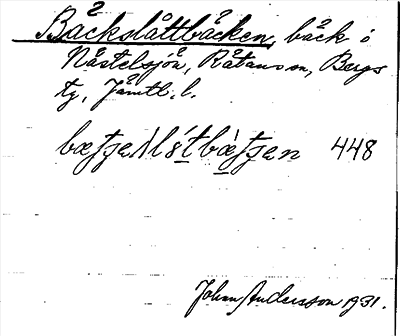 Bäckslåttbäcken, bäck i
Nästelsjön, Rätans sn, Bergs
tg, Jämtl. l.
448
Johan Andersson 1931.